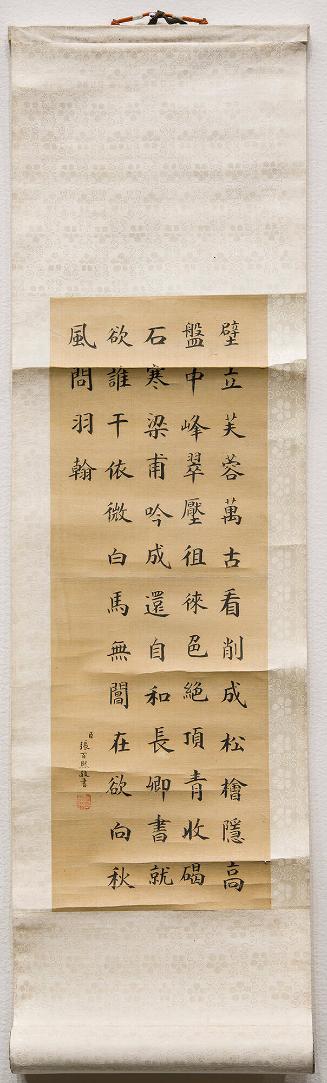 壁立芙蓉萬古看削成松檜隱高
盤中峰翠壓徂徠色絕頂青收碣
石寒梁甫吟成還自和長卿書就
欲誰干依微白馬無閶在欲向秋
風問羽翰
臣張百熙敬書